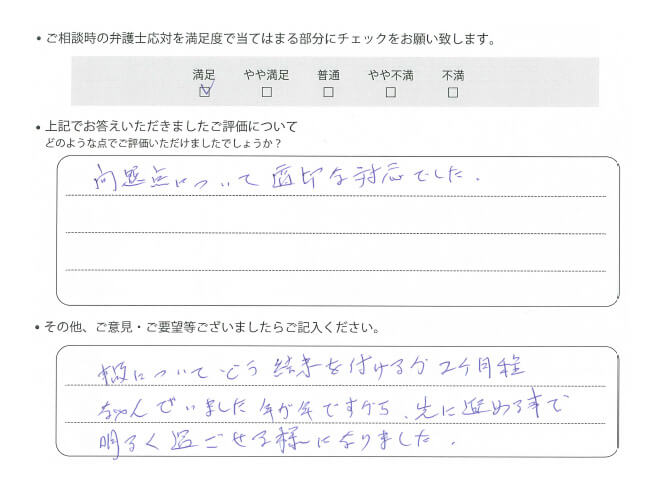 • ご相談時の弁護士応対を満足度で当てはまる部分にチェックをお願い致します。
満足 やや満足 普通 やや不満 不満
• 上記でお答えいただきましたご評価について
どのような点でご評価いただけましたでしょうか？
問題点について適切な対応でした．
• その他、ご意見・ご要望等ございましたらご記入ください。
について どう 結末を付けるか 2ケ月程
なやんでいました 年が年ですから、先に進める事で
明るく過ごせる様になりました．